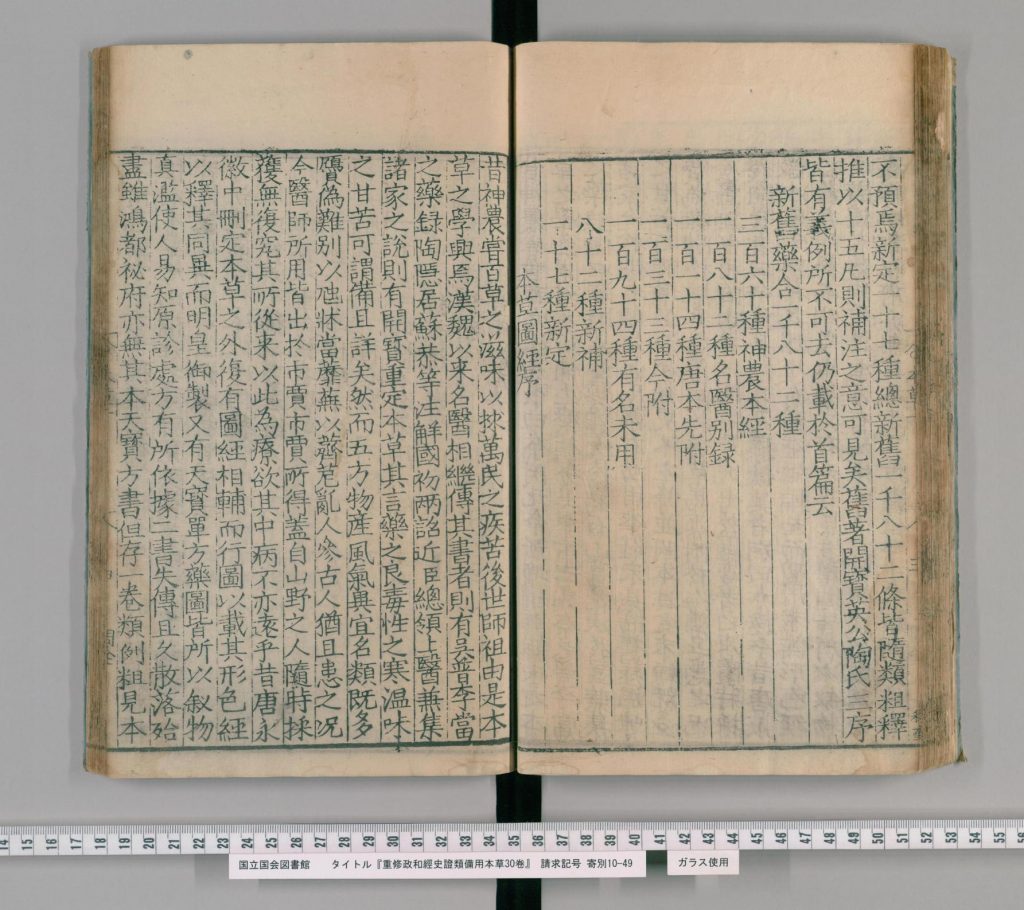 不預焉新定一十七種總新舊一千八十二條皆隨類粗釋
推以十五凡則補注之意可見矣舊著開寶英公陶氏三序
皆有義例所不可去仍載於首篇云
新舊藥合一千八十二種
三百六十種神農本經
一百八十二種名醫別録
一百一十四種唐本先附
一百三十三種今附
一百九十四種有名未用
八十二種新補
一十七種新定
本草圖經序
昔神農嘗百草之滋味以拯萬民之疾苦後世師祖由是本
草之學興焉漢魏以来名醫相繼傳其書者則有吳普李當
之藥録陶隠居蘇恭等注解國初兩詔近臣總領上醫兼集
諸家之說則有開寶重定本草其言藥之良毒性之寒温味
之甘苦可謂備且詳矣然而五方物産風氣異宜名類既多
贋偽難別以虺牀當蘼蕪以薺苨亂人參古人猶且患之况
今醫師所用皆出於市賈市賈所得蓋自山野之人隨時採
獲無復究其所從来以此為療欲其中病不亦逺乎昔唐永
徽中刪定本草之外復有圖經相輔而行圖以載其形色經
以釋其同異而明皇御製又有天寶單方藥圖皆所以叙物
真濫使人易知原診處方有所依據二書失傳且久散落殆
盡雖鴻都祕府亦無其本天寶方書但存一卷類例粗見本
14 15 16 17 18 19 20 21 22 23 24 25 26 27 28 29 30 31 32 33 34 35 36 37 38 39 40 41 42 43 44 45 46 47 48 49 50 51 52 53 54 55 56
国立国会図書館 タイトル『重修政和經史證類備用本草30巻』 請求記号 寄別10-49
ガラス使用